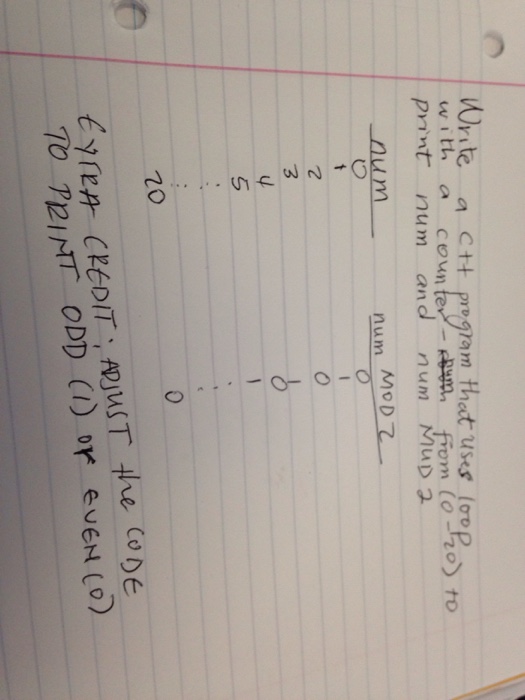 Write a C++ program that uses loop
with a counter - from (0-20) to
print num and num MOD 2
num num MOD 2
0 0
1 1
2 0
3 1
4 0
5 1
⋮ ⋮
20 0
EXTRA CREDIT: ADJUST the CODE
TO PRINT ODD (1) or EVEN (0)